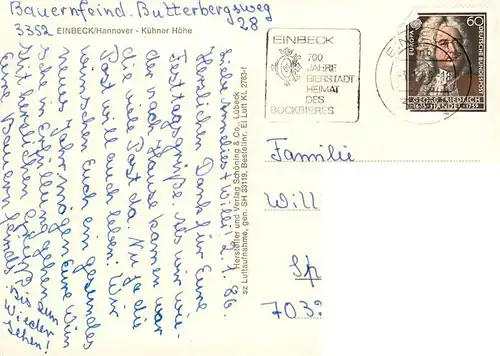 Bauernfeind. Butterbergsweg
28
3352 EINBECK/Hannover - Kühner Höhe
EINBECK
700
JAHRE
BIERSTADT
HEIMAT
DES
BOCKBIERES
EUROPA
60
DEUTSCHE BUNDESPOST
GEORG FRIEDRICH
HÄNDEL
Familie
Will
Sp
703
2.1.86.
Herzlichen Dank für Eure
Festtagsgrüße. Als wir wie-
der nach Hause kamen war
die viele Post da. Nu ja die
Post will auch leben. Wir
wünschen Euch ein gesundes
Jahr mögen Eure Wün
sche in Erfüllung gehen
Mit herzlichen Grüßen
Eure Bauern
feinds
Bis zum
Wieder
sehen!
Hersteller und Verlag Schöning & Co., Lübeck
sz Luftaufnahme, gen. SH 33119, Bestellnr. Ei Luft KL 2763-f